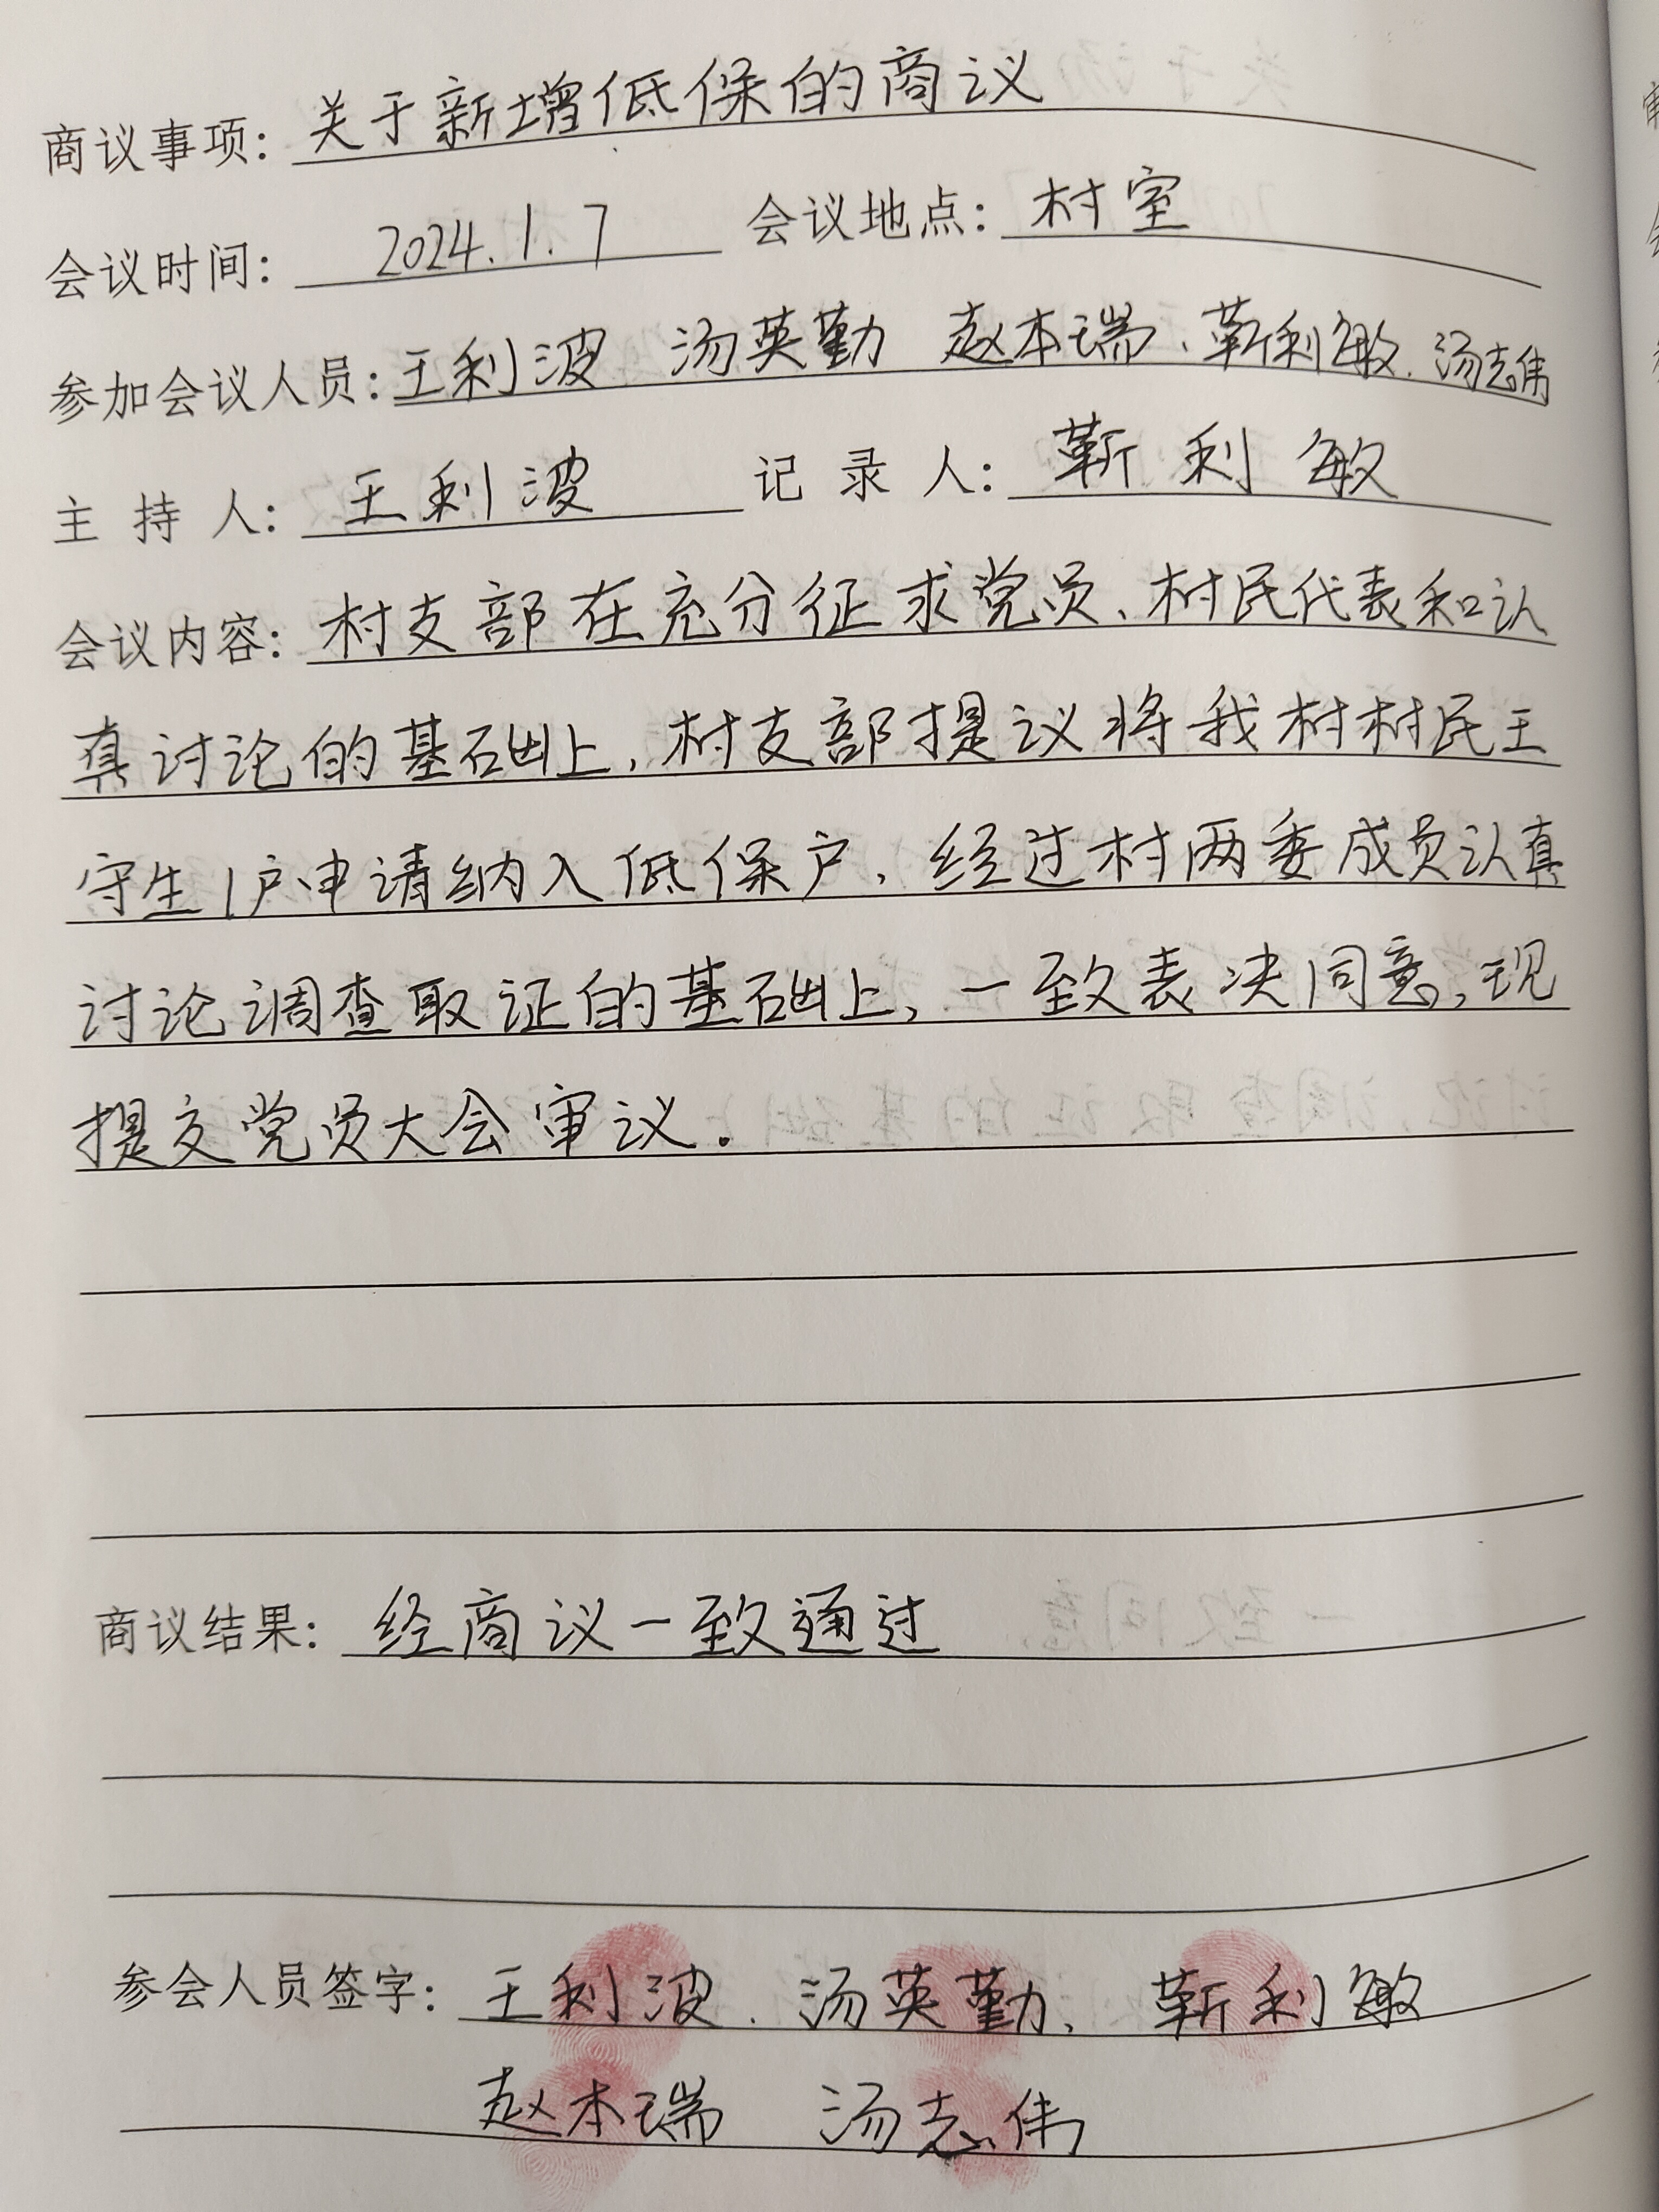 商议事项：关于新增低保的商议
会议时间：2024.1.7 会议地点：村室
参加会议人员：王利波 汤英勤 赵本瑞、靳利敏、汤志伟
主持人：王利波 记录人：靳利敏
会议内容：村支部在充分征求党员、村民代表和认
真讨论的基础上，村支部提议将我村村民王
守生1户申请纳入低保户，经过村两委成员认真
讨论调查取证的基础上，一致表决同意，现
提交党员大会审议.
商议结果：经商议一致通过
参会人员签字：王利波、汤英勤、靳利敏
赵本瑞 汤志伟